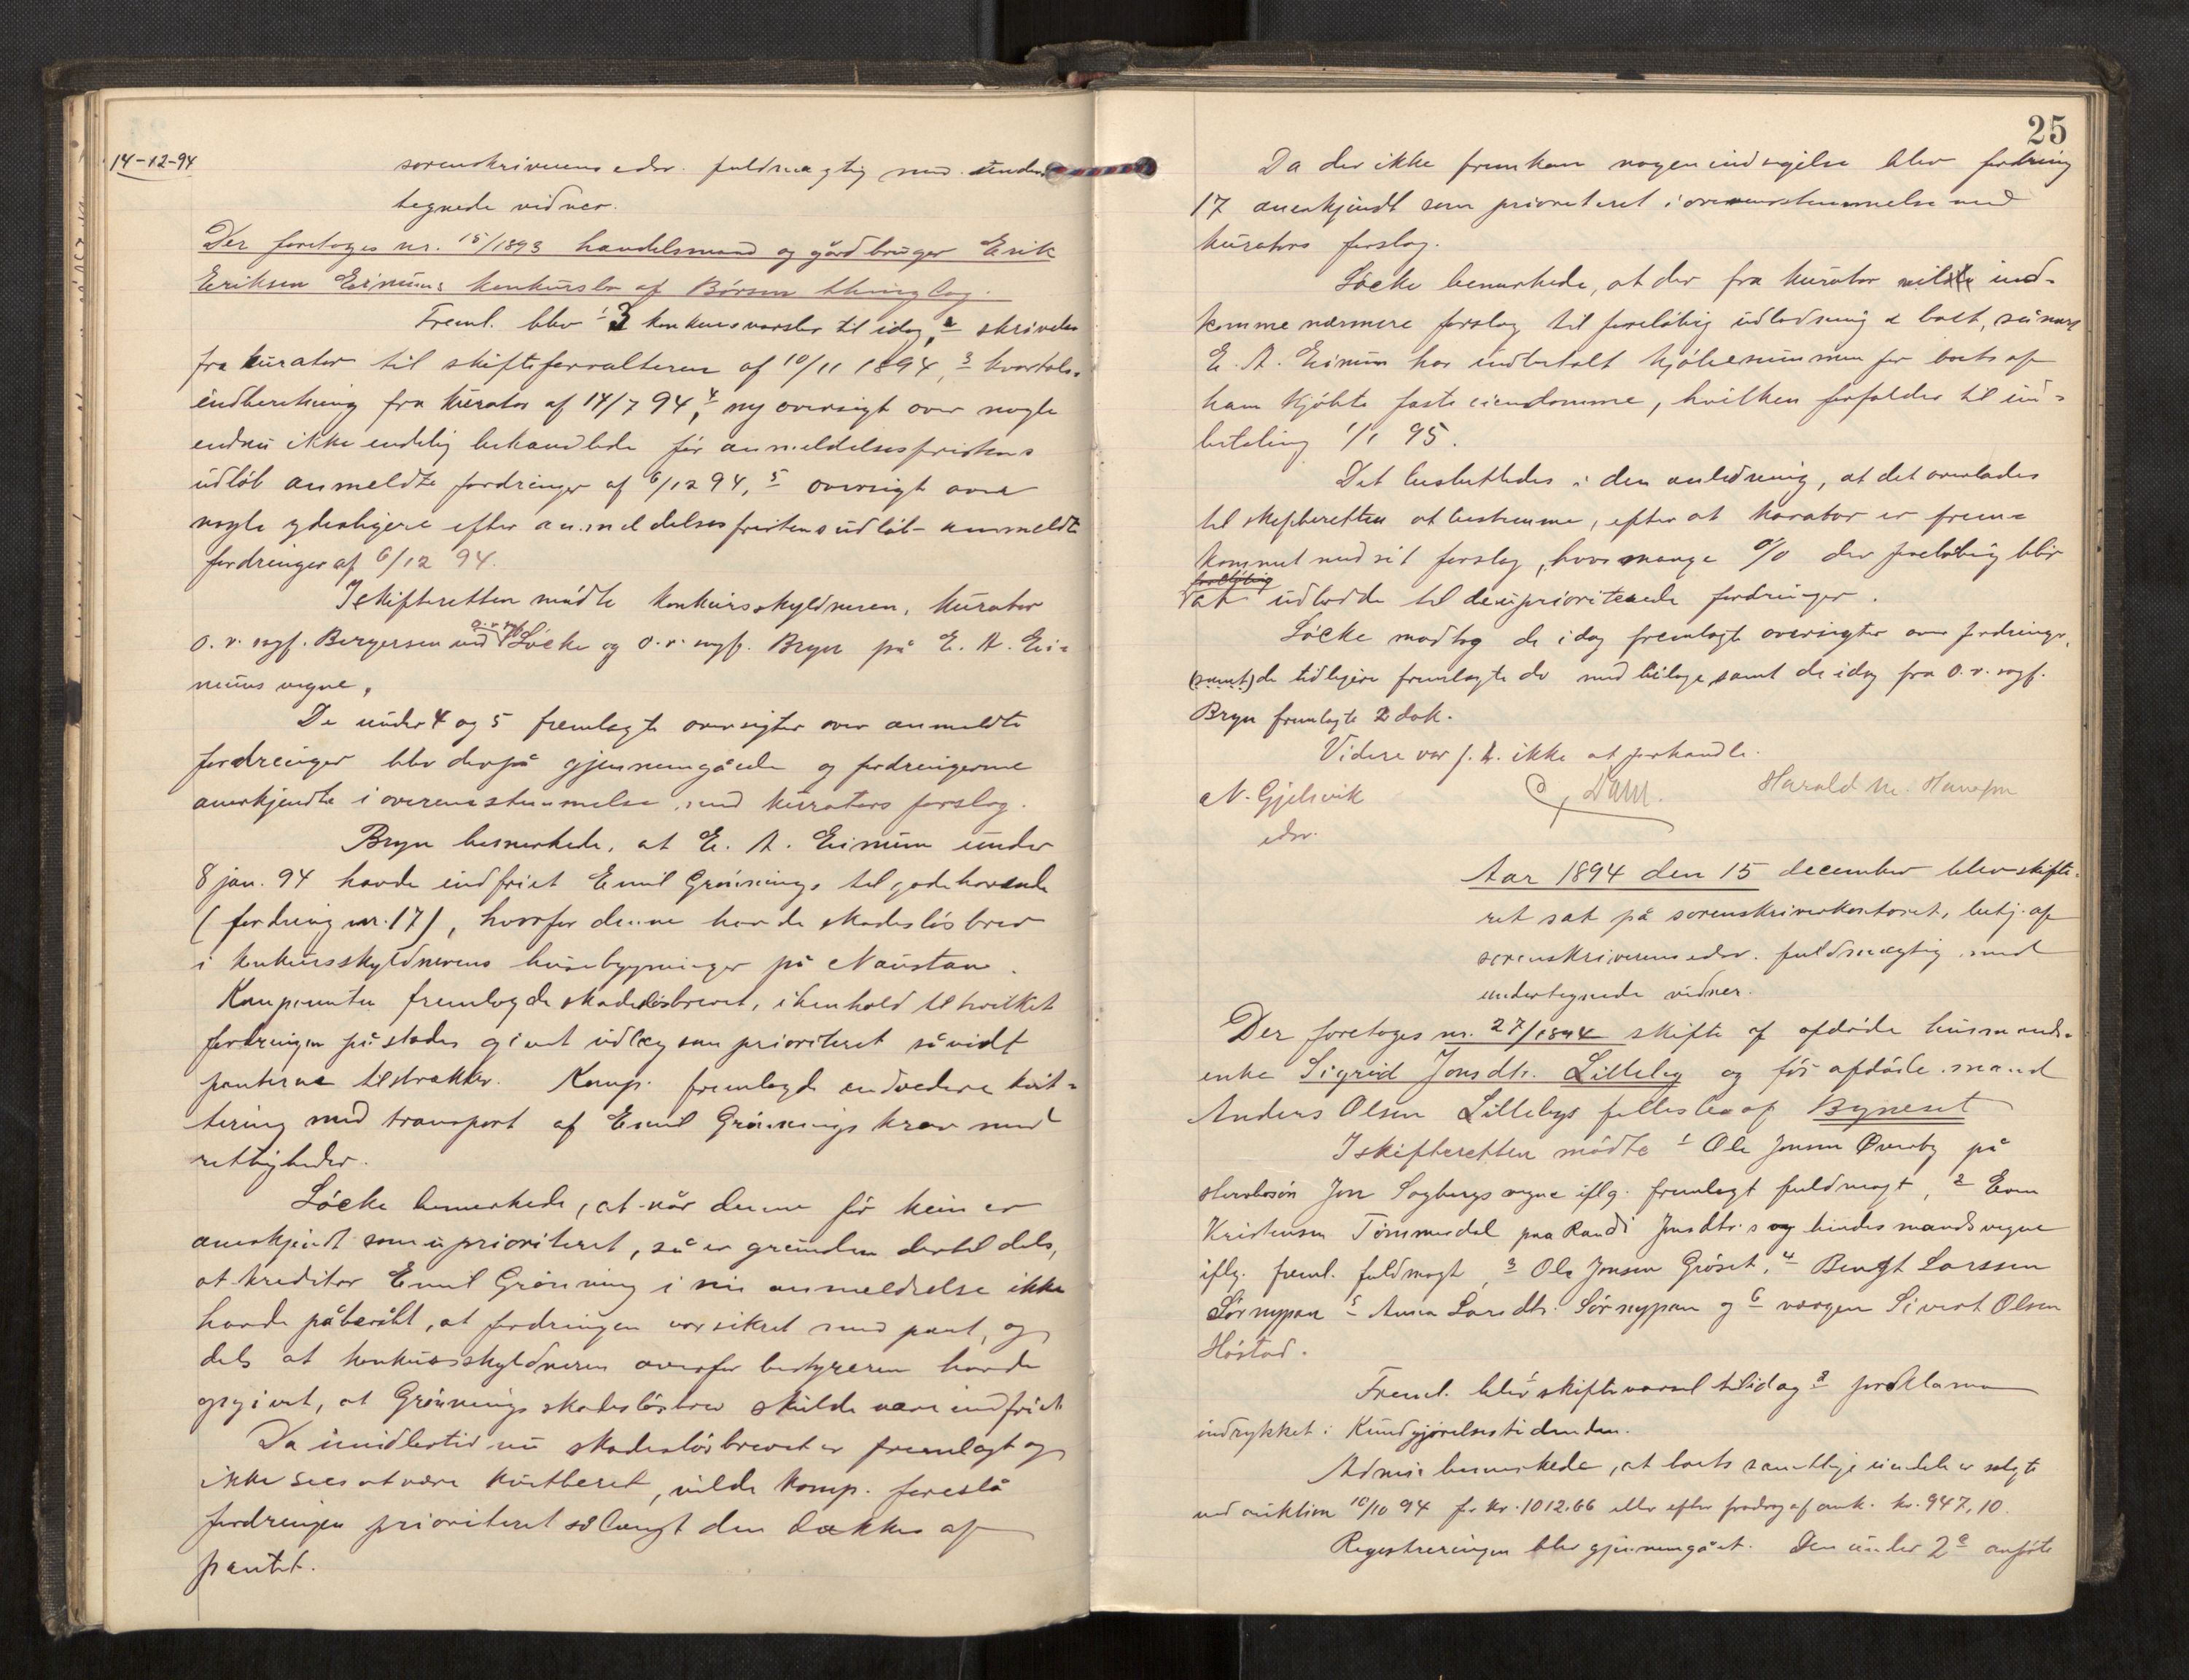 14-12-94
sorenskriverens edsv. fuldmægtig med under-
tegnede vidner.
Der foretoges nr. 15/1893 handelsmand og gårdbruger Erik
Eriksen Eimums konkursbo af Börsen thinglag.
Freml. blev 1 3 konkursvarsler til idag, 2 skrivelse
fra kurator til skifteforvalteren af 10/11 1894, 3 kvartals-
indberetning fra kurator af 14/7 94, 4 ny oversigt over nogle
endnu ikke endelig behandlede før anmeldelsesfristens
udløb anmeldte fordringer af 6/12 94, 5 oversigt over
nogle yderligere efter anmeldelsesfristens udløb anmeldte
fordringer af 6/12 94.
I skifteretten mødte konkursskyldneren, kurator
o.r. sagf. Bergersen ved o.r. sagf. Löcke og o.r. sagf. Bryn på E. A. Ei-
mums vegne.
De under 4 og 5 fremlagte oversigter over anmeldte
fordringer blev derpå gjennemgåede og fordringerne
anerkjendte i overensstemmelse med kurators forslag.
Bryn bemerkede, at E. A. Eimum under
8 jan. 94 havde indfriet Emil Grönnings tilgodehavende
(fordring nr. 17), hvorfor denne havde skadesløsbrev
i konkursskyldnerens husebygninger på Naustan.
Komparenten fremlagde skadesløsbrevet, i henhold til hvilket
fordringen påstodes givet udlæg som prioriteret såvidt
panterne tilstrækker. Komp. fremlagde endvidere kvit-
tering med transport af Emil Grönnings krav med
rettigheder.
Löcke bemerkede, at når denne før kun er
anerkjendt som uprioriteret, så er grunden dertil dels,
at kreditor Emil Grönning i sin anmeldelse ikke
havde påberåbt, at fordringen var sikret med pant, og
dels at konkursskyldneren overfor bestyreren havde
opgivet, at Grönnings skadesløsbrev skulde være indfriet.
Da imidlertid nu skadesløsbrevet er fremlagt og
ikke sees at være kvitteret, vilde komp. foreslå
fordringen prioriteret så langt den dækkes af
pantet.
25
Da der ikke fremkom nogen indsigelse blev fordring
17 anerkjendt som prioriteret i overensstemmelse med
kurators forslag.
Löcke bemerkede, at der fra kurator vil indkomme
komme nærmere forslag til foreløbig udlodning i boet, så snart
E. A. Eimum har indbetalt kjøbesummen for boets af
ham kjøbte faste eiendomme, hvilken forfalder til ind-
betaling 1/1 95.
Det besluttedes i den anledning, at det overlades
til skifteretten at bestemme, efter at kurator er frem-
kommet med sit forslag, hvor mange % der foreløbig blir
at udlodde til de uprioriterede fordringer.
Löcke modtog de idag fremlagte oversigter over fordringer,
(samt) de tidligere fremlagte do med bilage samt de idag fra o.r. sagf.
Bryn fremlagte 2 dok.
Videre var p.t. ikke at forhandle.
N. Gjelsvik
edsv.
Dahl.
Harald M. Hansen
Aar 1894 den 15 december blev skifte-
ret sat på sorenskriverkontoret, betj. af
sorenskriverens edsv. fuldmægtig med
undertegnede vidner.
Der foretoges nr. 27/1894 skifte af afdøde husmands-
enke Sigrid Jonsdtr. Lilleby og før afdøde mand
Anders Olsen Lillebys fællesbo af Byneset
I skifteretten mødte 1 Ole Jonsen Øverby på
Jon Sagbergs vegne iflg. fremlagt fuldmagt, 2 Even
Kristensen Tömmerdal paa Randi Jonsdtr.s og hindes mands vegne
iflg. freml. fuldmagt, 3 Ole Jonsen Gröset, 4 Bengt Larssen
Sörnypan 5 Anna Larsdtr. Sörnypan og 6 værgen Sivert Olsen
Höstad.
Freml. blev 1 skiftevarsel til idag 2 proklama
indrykket i Kundgjørelsestidenden.
Admin. bemerkede, at boets samtlige eiendele er solgte
ved auktion 10/10 94 for kr. 1012,66 eller efter fradrag af omk. kr. 947,10.
Registreringen blev gjennemgået. Den under 2 a anførte